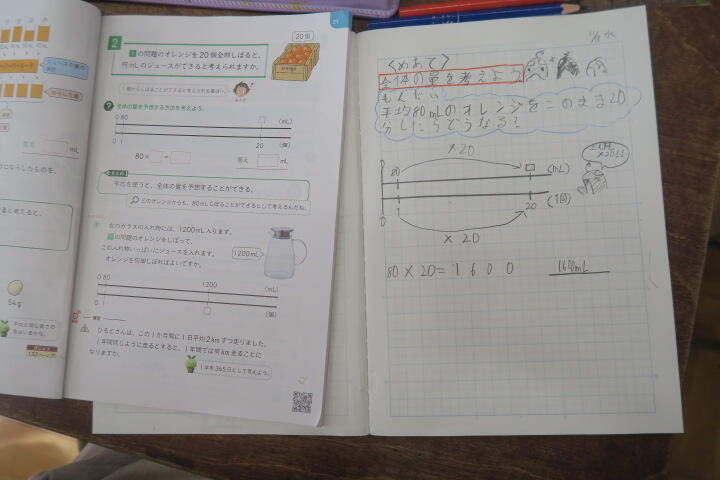 21
2
1 の問題のオレンジを20個全部しぼると、
何mLのジュースができると考えられますか。
20個
? 全体の量を予想する方法を考えよう。
0 80
(mL)
0 1
20
(個)
80× =
答え
mL
まとめ
平均を使うと、全体の量を予想することができる。
どのオレンジからも、80mLしぼることができるとして考えるんだね。
右のガラスの入れ物には、1200mL入ります。
1 の問題のオレンジをしぼって、
この入れ物いっぱいにジュースを入れます。
オレンジを何個しぼればよいですか。
1200mL
0 80
1200
(mL)
0 1
(個)
ひろとさんは、この1か月間に1日平均2kmずつ走りました。
1年間同じように走るとすると、1年間では何km走ることに
なりますか。
1年を365日として考えよう。
答え
mL
54g
<めあて>
全体の量を考えよう
もんだい
平均80mLのオレンジをこのまま20
分したらどうなる?
×20
0 80
(mL)
0 1
20
(個)
×20
80×20=1600
1600mL